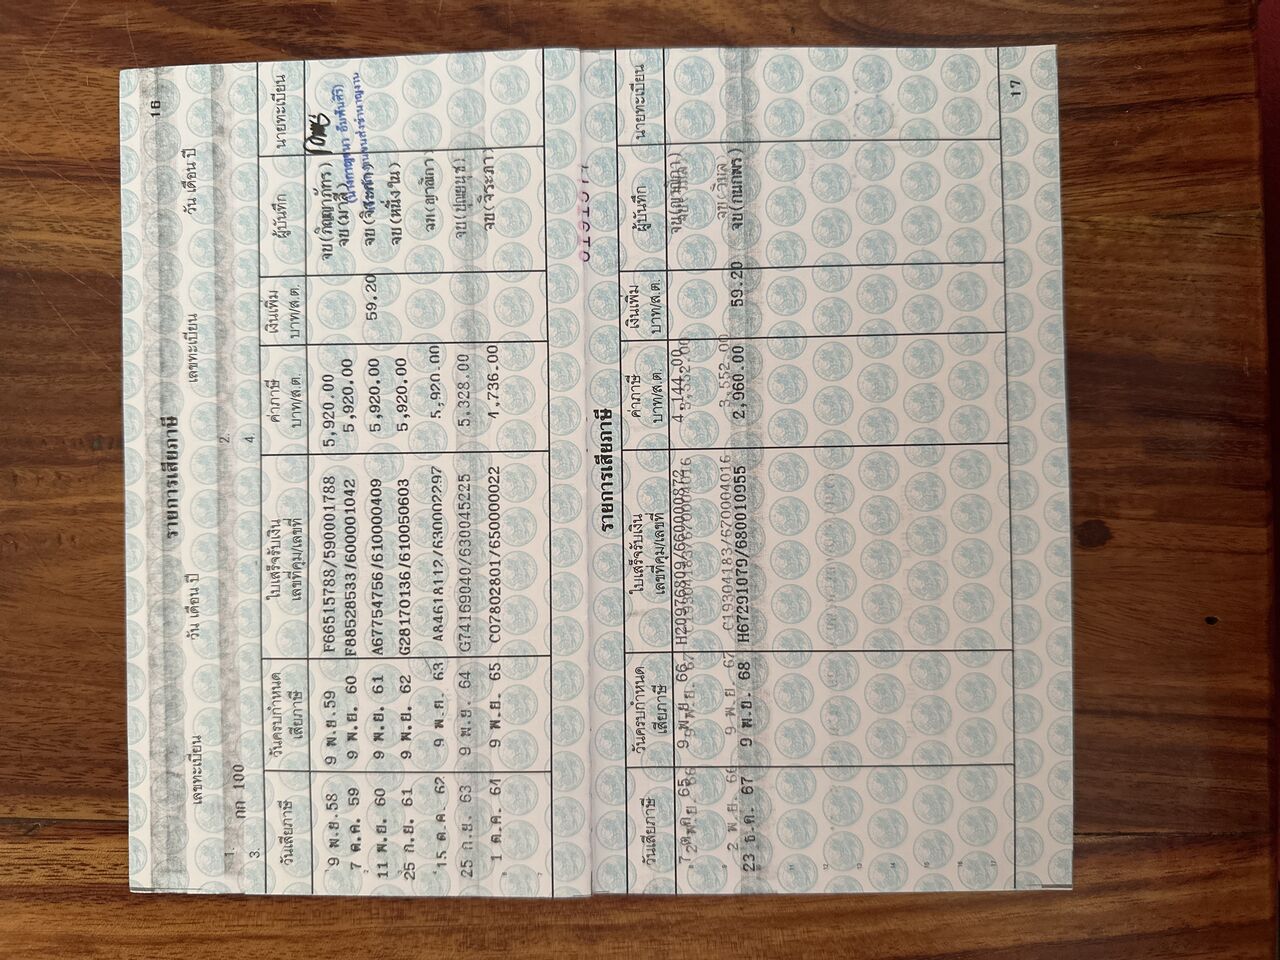 16
รายการเสียภาษี
เลขทะเบียน วัน เดือน ปี เลขทะเบียน วัน เดือน ปี
1. กก 100 2.
3. 4.
วันเสียภาษี วันครบกำหนดเสียภาษี ใบเสร็จรับเงิน เลขที่คุม/เลขที่ ค่าภาษี บาท/ส.ต. เงินเพิ่ม บาท/ส.ต. ผู้บันทึก นายทะเบียน
9 พ.ย.58 9 พ.ย.59 F66515788/590001788 5,920.00 จบ
7 ต.ค. 59 9 พ.ย. 60 F88528533/600001042 5,920.00 จบ(มาลี)
11 พ.ย. 60 9 พ.ย. 61 A67754756/610000409 5,920.00 59.20 จบ
25 ก.ย. 61 9 พ.ย. 62 G28170136/610050603 5,920.00 จบ(หนึ่งใน)
15 ต.ค. 62 9 พ.ย. 63 A84618112/630002297 5,920.00
25 ก.ย. 63 9 พ.ย. 64 G74169040/630045225 5,328.00 จบ
1 ต.ค. 64 9 พ.ย. 65 C07802801/650000022 4,736.00 จบ(จิระภา)
รายการเสียภาษี
วันเสียภาษี วันครบกำหนดเสียภาษี ใบเสร็จรับเงิน เลขที่คุม/เลขที่ ค่าภาษี บาท/ส.ต. เงินเพิ่ม บาท/ส.ต. ผู้บันทึก นายทะเบียน
7 ต.ค. 65 9 พ.ย 66 H20976809/660000872 4,144.00
2 พ.ย. 66 9 พ.ย 67 C19304183/670004016 3,552.00 จบ(วิมล
23 ธ.ค. 67 9 พ.ย. 68 H67291079/680010955 2,960.00 59.20 จบ(กนกพร)
17